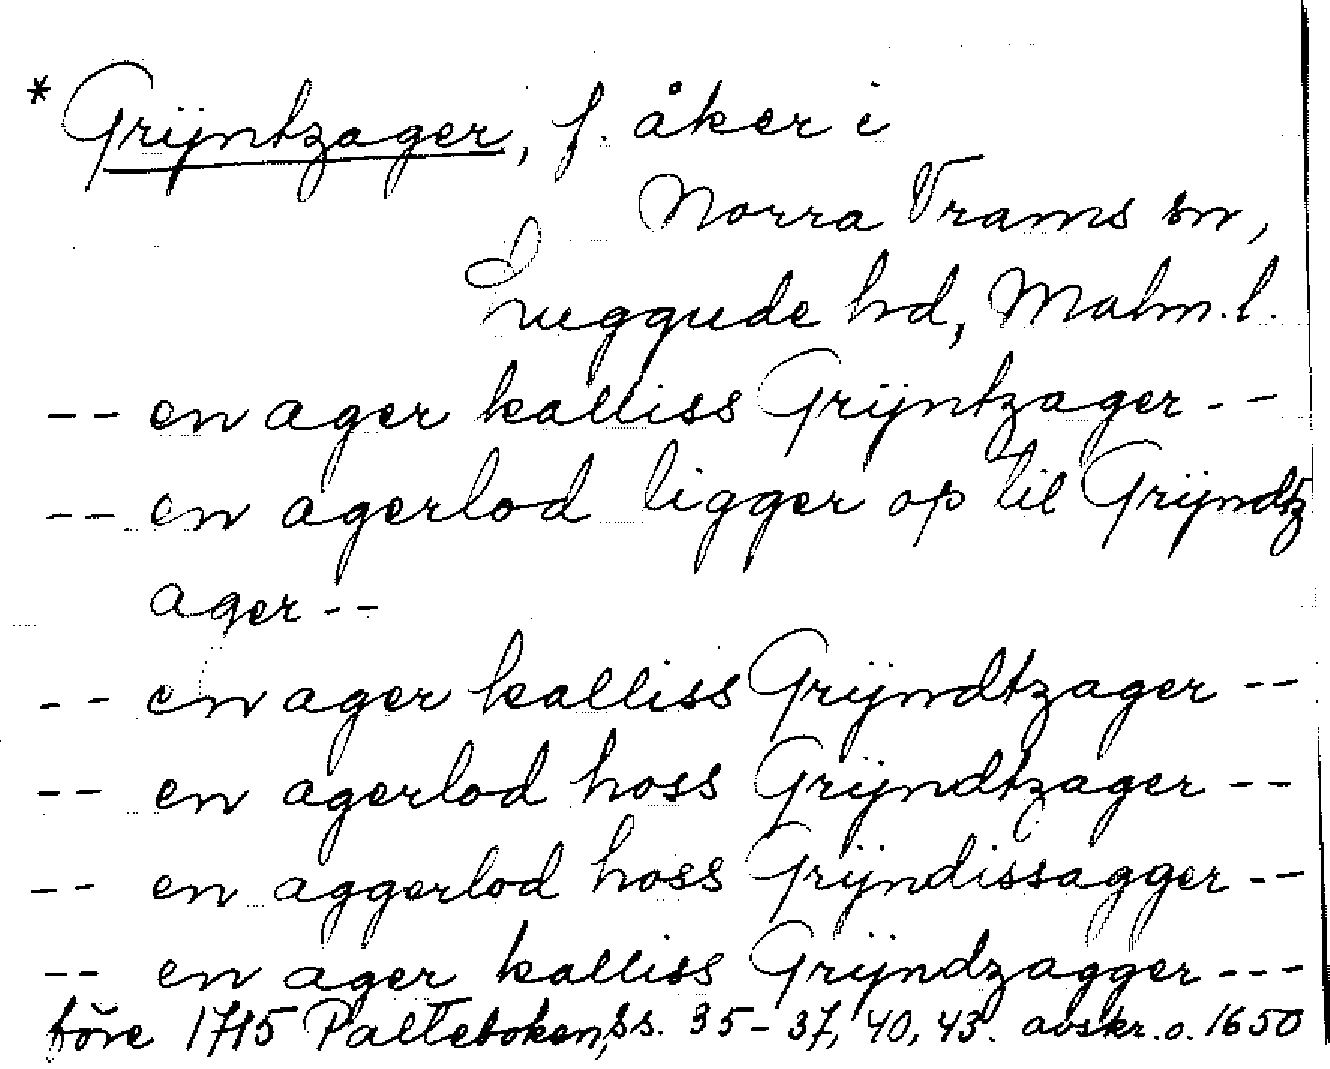 * Grÿntzager, f. åker i
Norra Vrams sn,
Luggude hd, Malm. l.
-- en ager kalliss Grÿntzager --
-- en agerlod ligger op til Grÿndtz
ager --
-- en ager kalliss Grÿndtzager --
-- en agerlod hoss Grÿndtzager --
-- en aggerlod hoss Grÿndissagger --
-- en ager kalliss Grÿndzagger ---
före 1715 Palteboken, ss. 35-37, 40, 43. avskr. o. 1650